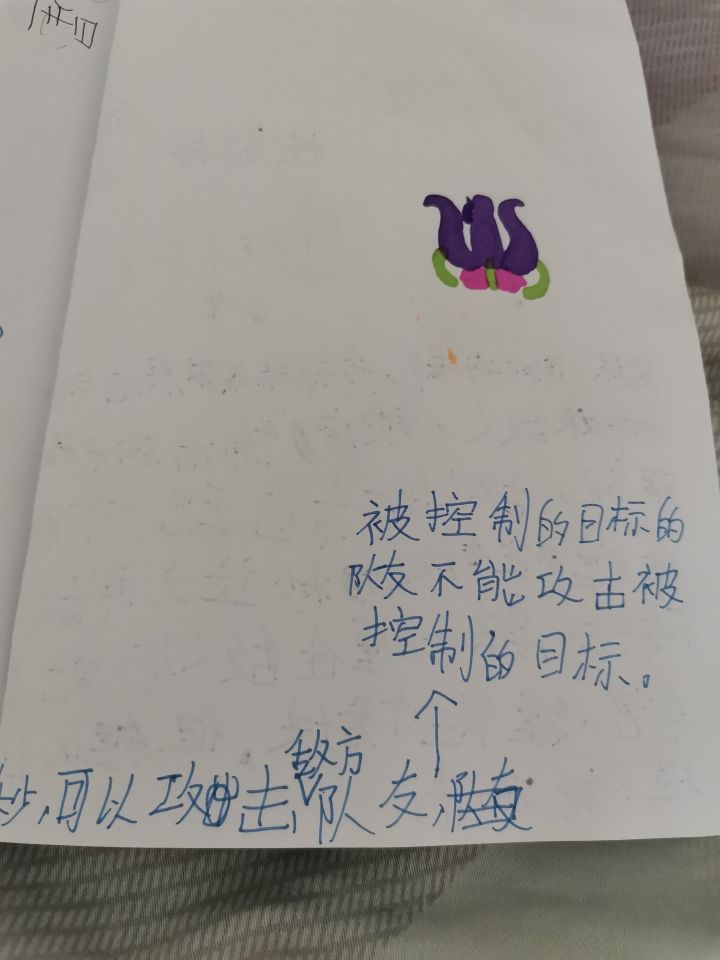 被控制的目标的
队友不能攻古被
控制的目标。
↑
秒,可以攻击警方队友,